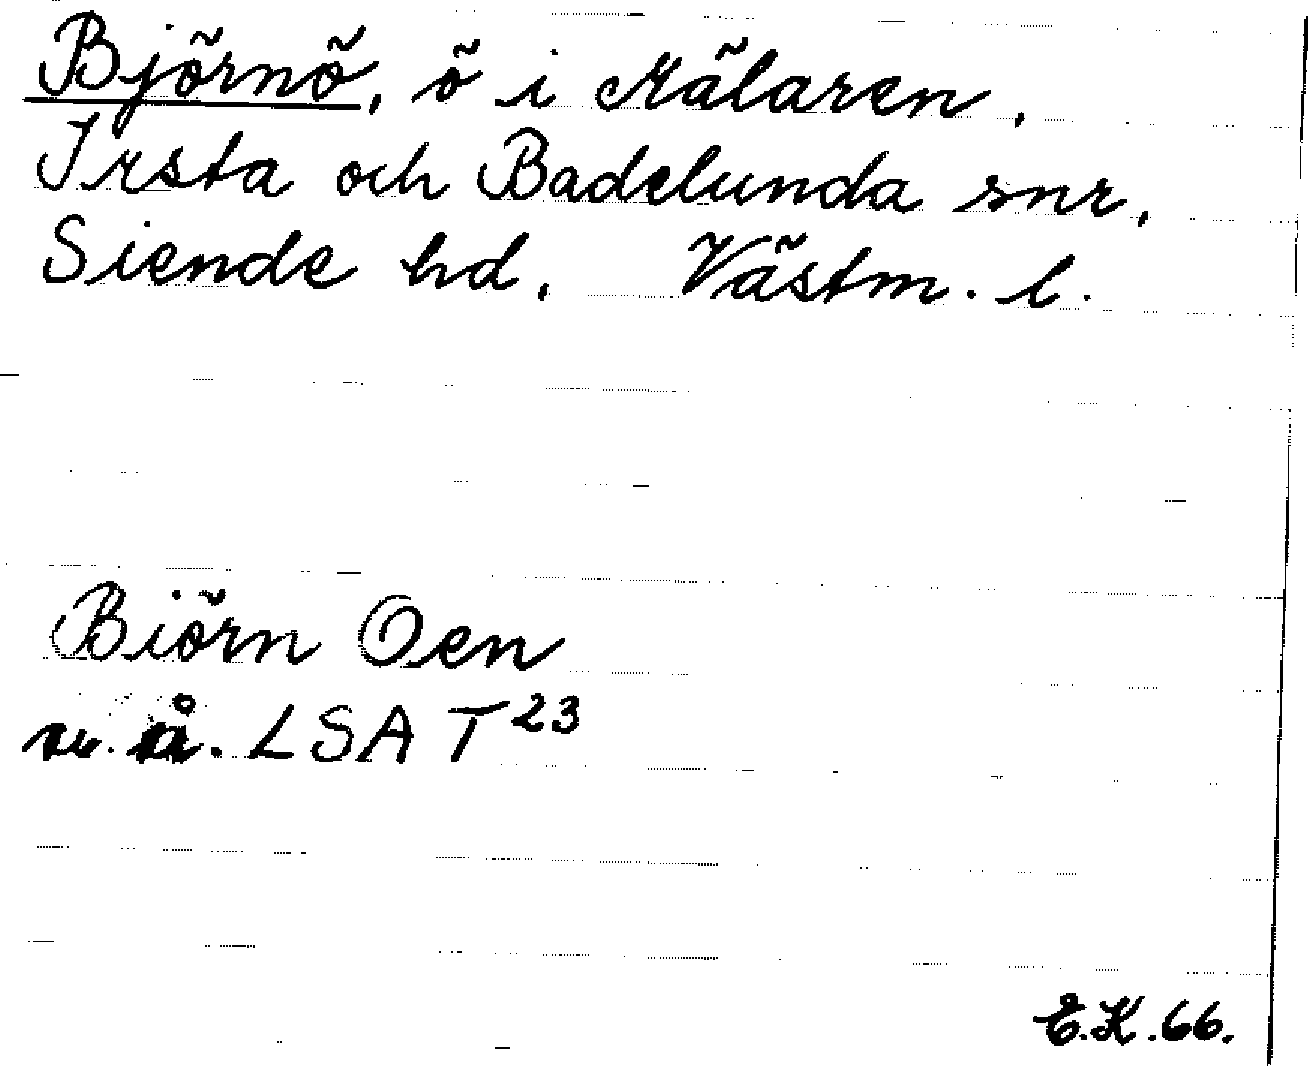 Björnö, ö i Mälaren,
Irsta och Badelunda snr,
Siende hd, Västm. l.
Biörn Oen
u. å. LSA T 23
E.K. 66.